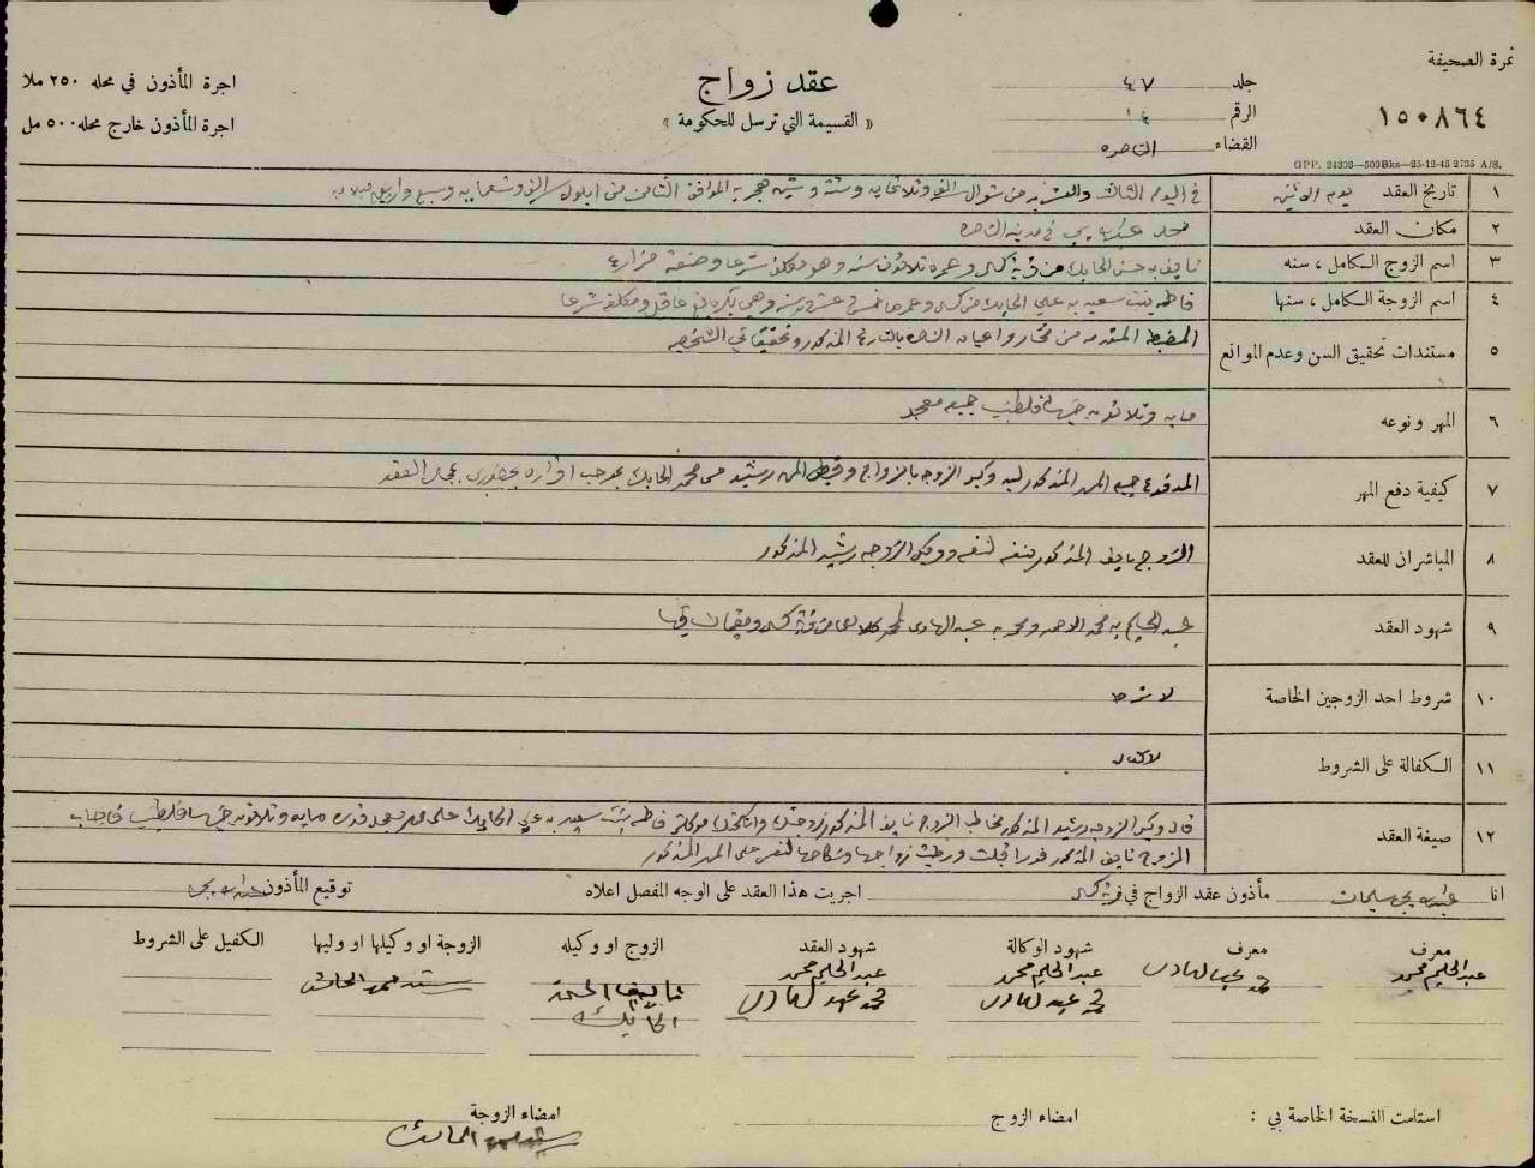 نمرة الصحيفة
١٥٠٨٦٤
G.P.P. 24303—500 Bks—25-12-45 2735 A/S.
جلد ٤٧
الرقم ١٤
القضاء الناصره
عقد زواج
« القسيمة التي ترسل للحكومة »
اجرة المأذون في محله ٢٥٠ ملا
اجرة المأذون خارج محله ٥٠٠ مل
١ تاريخ العقد يوم الاثنين في اليوم الثالث والعشرين من شوال سنة الف وثلاثمايه وستة وستين هجريه الموافق الثامن من ايلول سنة الف وتسعمايه وسبع واربعين ميلاديه
٢ مكان العقد محل في مدينة الناصره
٣ اسم الزوج الكامل ، سنه نايف بن حسن الحايك من قرية وعمره ثلاثون سنه وهو مكلف شرعا وصنعته مزارع
٤ اسم الزوجة الكامل ، سنها فاطمه بنت سعيد بن علي الحايك من وعمرها خمس وعشرون سنه وهي بكر بالغ عاقل ومكلفه شرعا
٥ مستندات تحقيق السن وعدم الموانع المضبطه المقدمه من مختار واعيان الناصره بالتاريخ المذكور وتحقيقاتي الشخصيه
٦ المهر ونوعه مايه وثلاثون جنيها فلسطينيا جميعه معجل
٧ كيفية دفع المهر المدفوع جميع المهر المذكور ليد وكيل الزوجه بالزواج وقبض المهر رشيد محمد الحايك بموجب اقراره بحضوري بمجلس العقد
٨ المباشران للعقد الزوج نايف المذكور بنفسه لنفسه ووكيل الزوجه رشيد المذكور
٩ شهود العقد عبد الحليم بن محمد الاحمد ومحمد بن عبد الهادي من قرية ومقيمان فيها
١٠ شروط احد الزوجين الخاصة لا شرط
١١ الكفالة على الشروط لا كفاله
١٢ صيغة العقد قال وكيل الزوجه رشيد المذكور مخاطبا الزوج نايف المذكور زوجتك وانكحتك موكلتي فاطمه بنت سعيد بن علي الحايك على مهر معجل قدره مايه وثلاثون جنيها فلسطينيا فاجاب
الزوج نايف المذكور فورا قبلت ورضيت زواجها ونكاحها لنفسي على المهر المذكور
انا مأذون عقد الزواج في قرية اجريت هذا العقد على الوجه المفصل اعلاه توقيع المأذون
معرف معرف شهود الوكالة شهود العقد الزوج او وكيله الزوجة او وكيلها او وليها الكفيل على الشروط
عبد الحليم محمد محمد عبد الهادي عبد الحليم محمد عبد الحليم محمد نايف الحسن رشيد محمد الحايك
محمد عبد الهادي محمد عبد الهادي الحايك
استلمت النسخة الخاصة بي : امضاء الزوج امضاء الزوجة
رشيد محمد الحايك